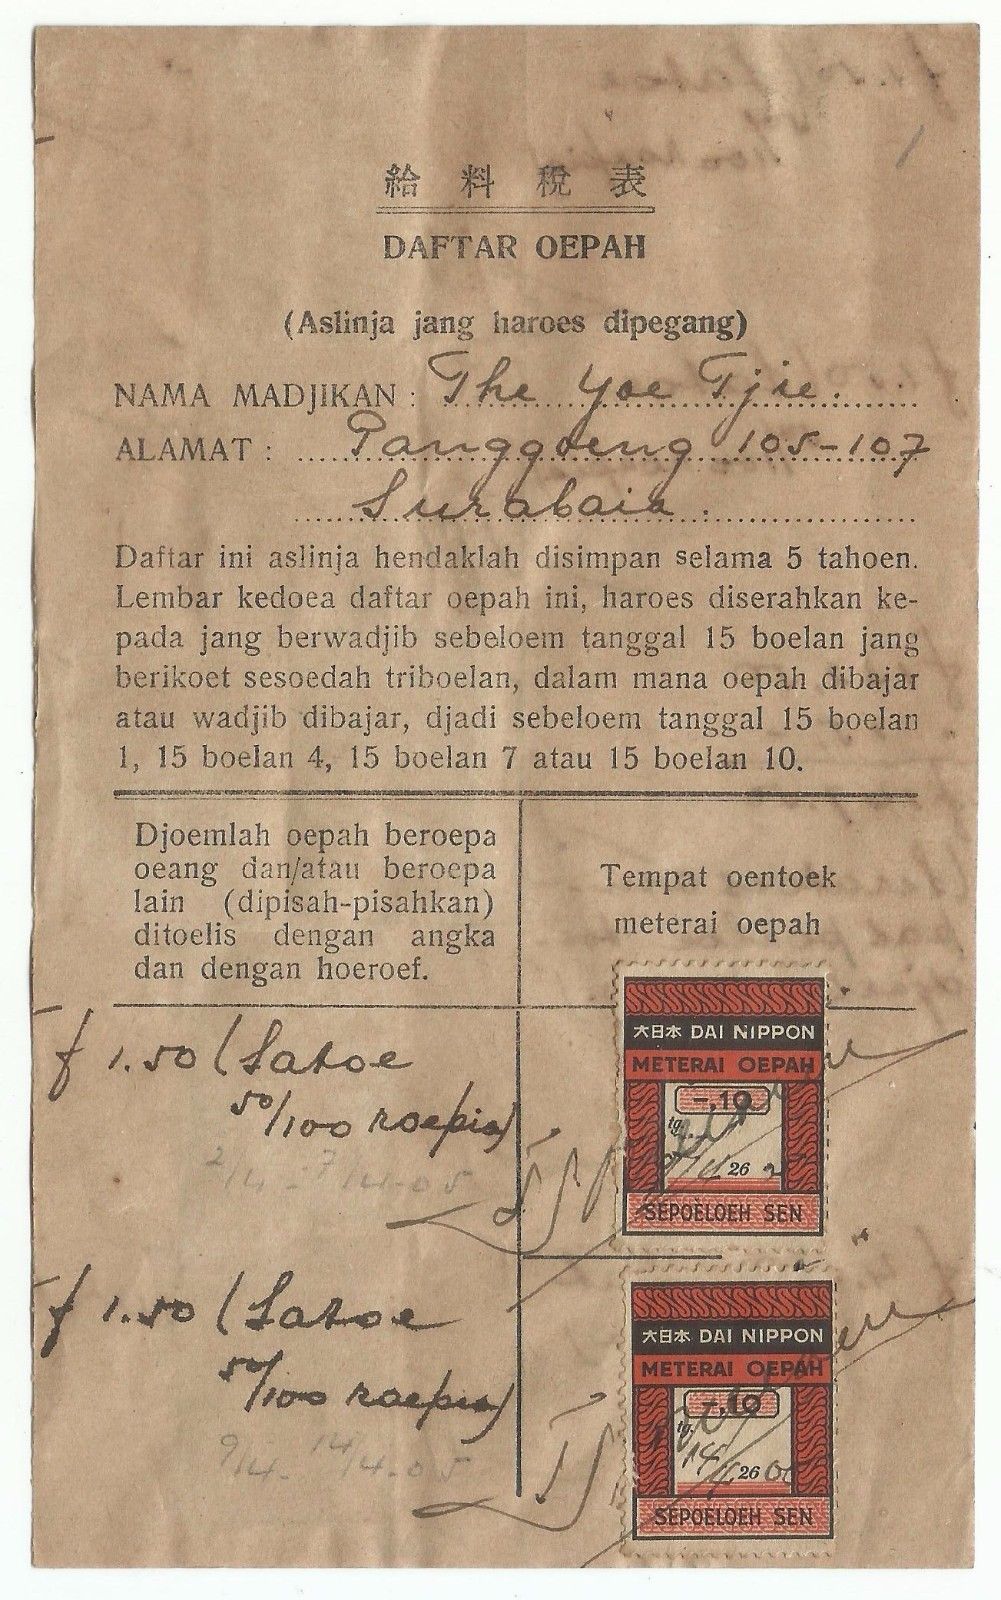 給料税表
DAFTAR OEPAH
(Aslinja jang haroes dipegang)
NAMA MADJIKAN : The Yoe Tjie.
ALAMAT : Panggoeng 105-107
Surabaia.
Daftar ini aslinja hendaklah disimpan selama 5 tahoen.
Lembar kedoea daftar oepah ini, haroes diserahkan ke-
pada jang berwadjib sebeloem tanggal 15 boelan jang
berikoet sesoedah triboelan, dalam mana oepah dibajar
atau wadjib dibajar, djadi sebeloem tanggal 15 boelan
1, 15 boelan 4, 15 boelan 7 atau 15 boelan 10.
Djoemlah oepah beroepa
oeang dan/atau beroepa
lain (dipisah-pisahkan)
ditoelis dengan angka
dan dengan hoeroef.
Tempat oentoek
meterai oepah
f 1.50 (Satoe
50/100 roepia)
2/4 - 7/4-05
大日本 DAI NIPPON
METERAI OEPAH
-.10
tg.
26
SEPOELOEH SEN
f 1.50 (Satoe
50/100 roepia)
9/4- 14/4-05
大日本 DAI NIPPON
METERAI OEPAH
-.10
tg.
14
26
SEPOELOEH SEN